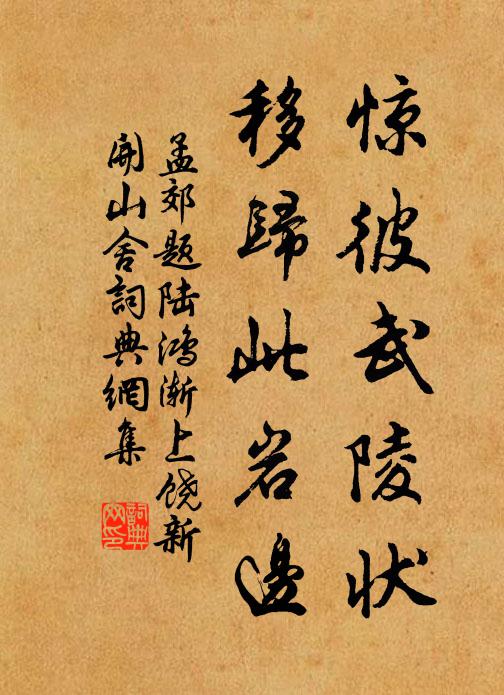 惊彼武陵状
移歸此岩邊
孟郊题陆鸿渐上饶新
開山舍詞典網集
詞典
网印